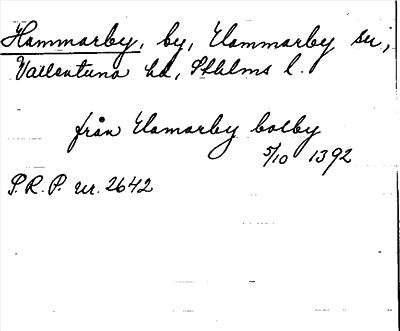 Hammarby, by, Hammarby sn,
Vallentuna hd, Sthlms l.
från Hamarby bolby
5/10 1392
P.R.P. nr. 2642